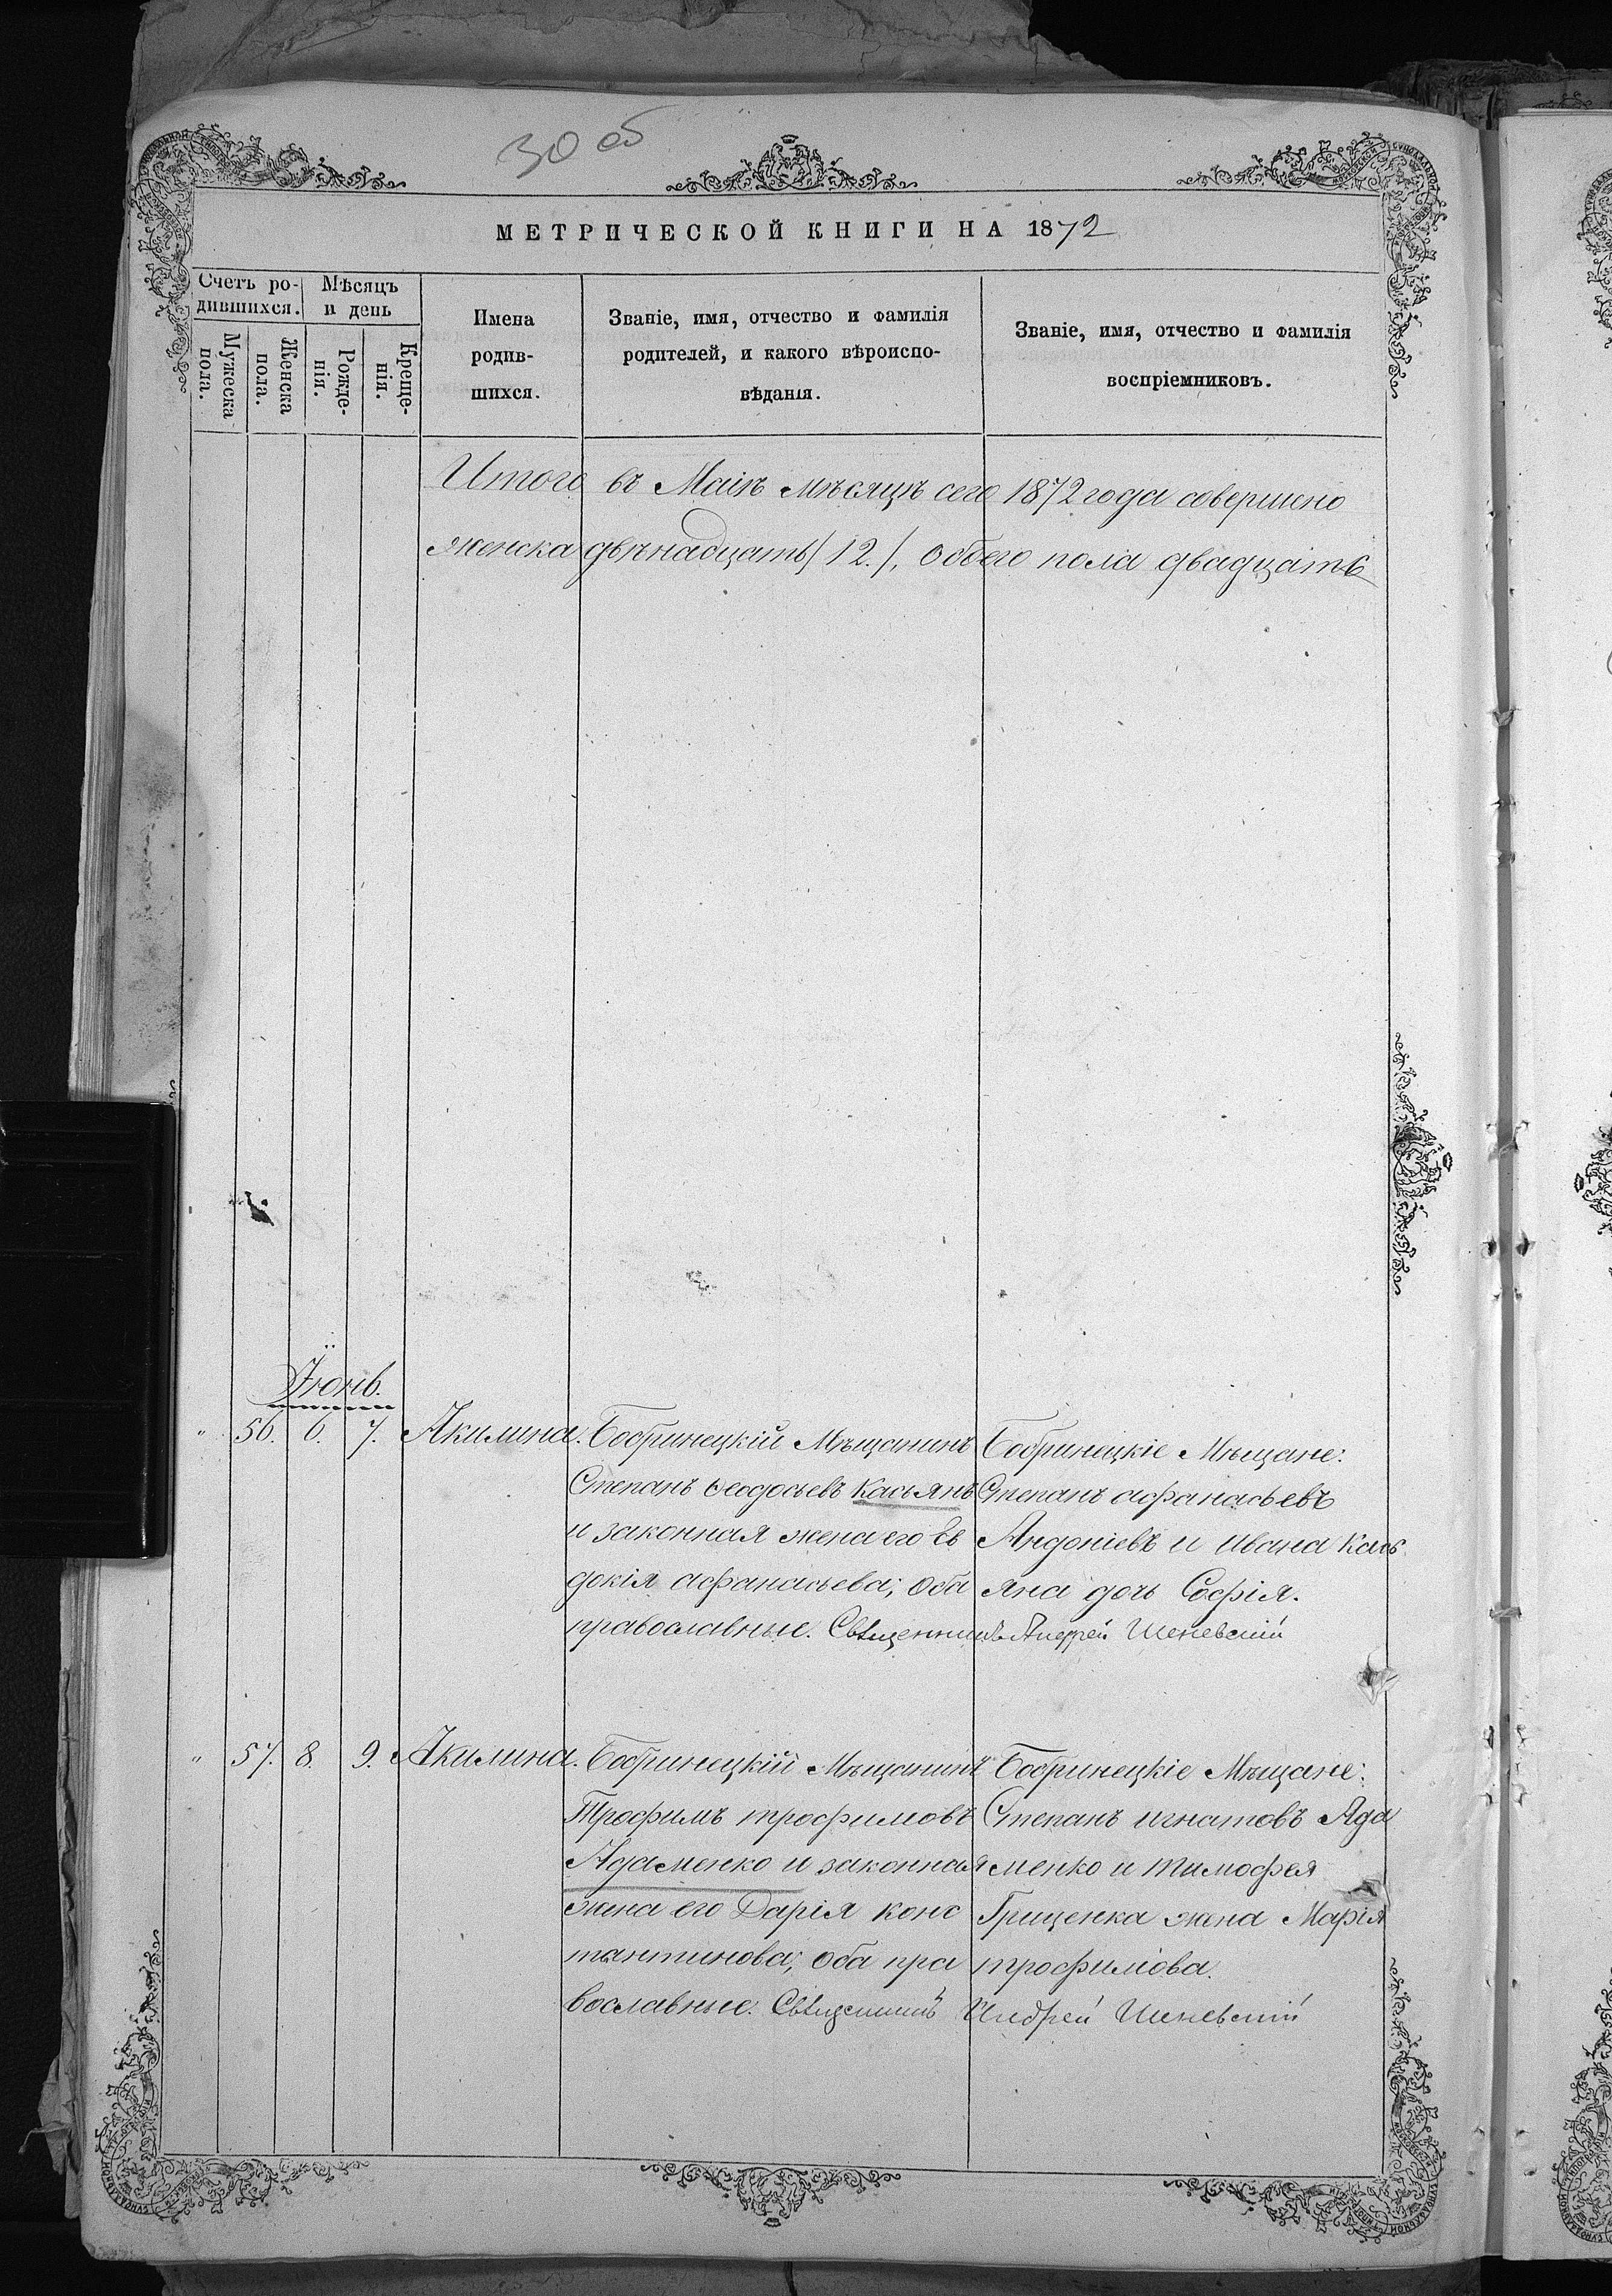 30 об
МЕТРИЧЕСКОЙ КНИГИ НА 1872
Счетъ родившихся.
Мужеска пола.
Женска пола.
Мѣсяцъ и день
Рожденія.
Крещенія.
Имена
родив-
шихся.
Званіе, имя, отчество и фамилія
родителей, и какого вѣроиспо-
вѣданія.
Званіе, имя, отчество и фамилія
воспріемниковъ.
Итого въ Маіѣ мѣсяцѣ сего 1872 года совершено
женска двѣнадцать /12./, обоего пола двадцать
Іюнь.
" 56. 6. 7. Акилина.
Бобринецкій Мѣщанинъ
Степанъ Ѳеодосьевъ Касьянъ
и законная жена его Ев
докія афанасьева; оба
православные. Священникъ Андрей Шеневскій
Бобринецкіе Мѣщане:
Степанъ афанасьевъ
Андоніевъ и Ивана Кась
яна дочь Софія.
" 57. 8. 9. Акилина.
Бобринецкій Мѣщанинъ
Трофимъ трофимовъ
Адаменко и законная
жена его Дарія конс
тантинова; оба пра
вославные. Священникъ Андрей Шеневскій
Бобринецкіе Мѣщане:
Степанъ игнатовъ Ада
менко и тимофея
Гриценка жена Марія
трофимова.